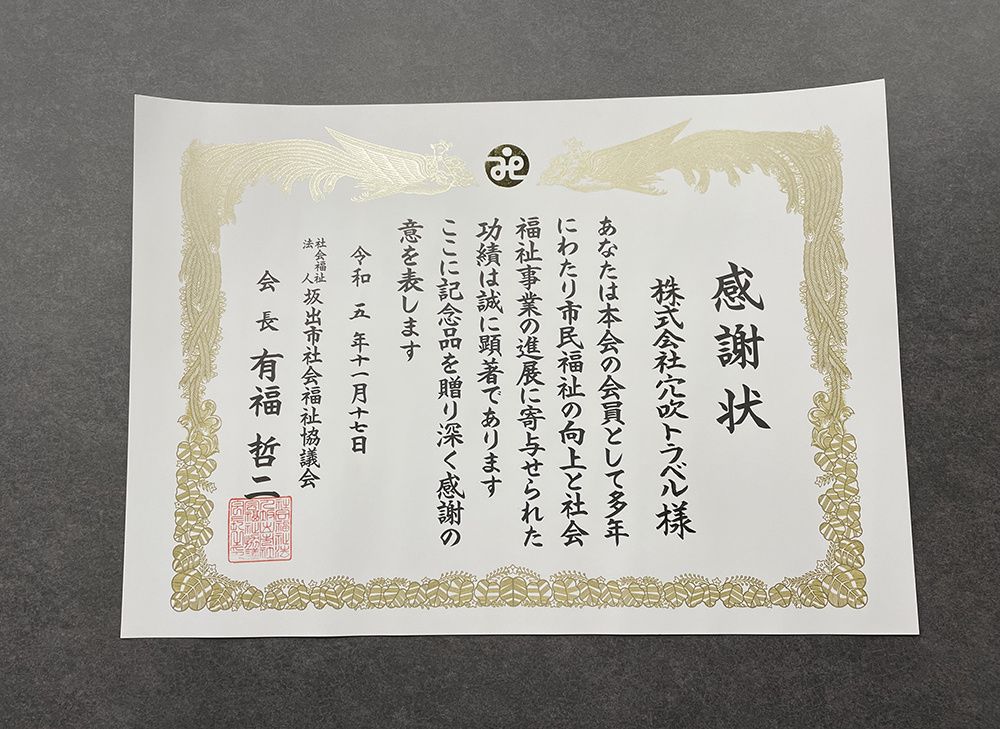 感謝状
株式会社穴吹トラベル様
あなたは本会の会員として多年
にわたり市民福祉の向上と社会
福祉事業の進展に寄与せられた
功績は誠に顕著であります
ここに記念品を贈り深く感謝の
意を表します
令和五年十一月十七日
社会福祉法人坂出市社会福祉協議会
会長 有福哲二